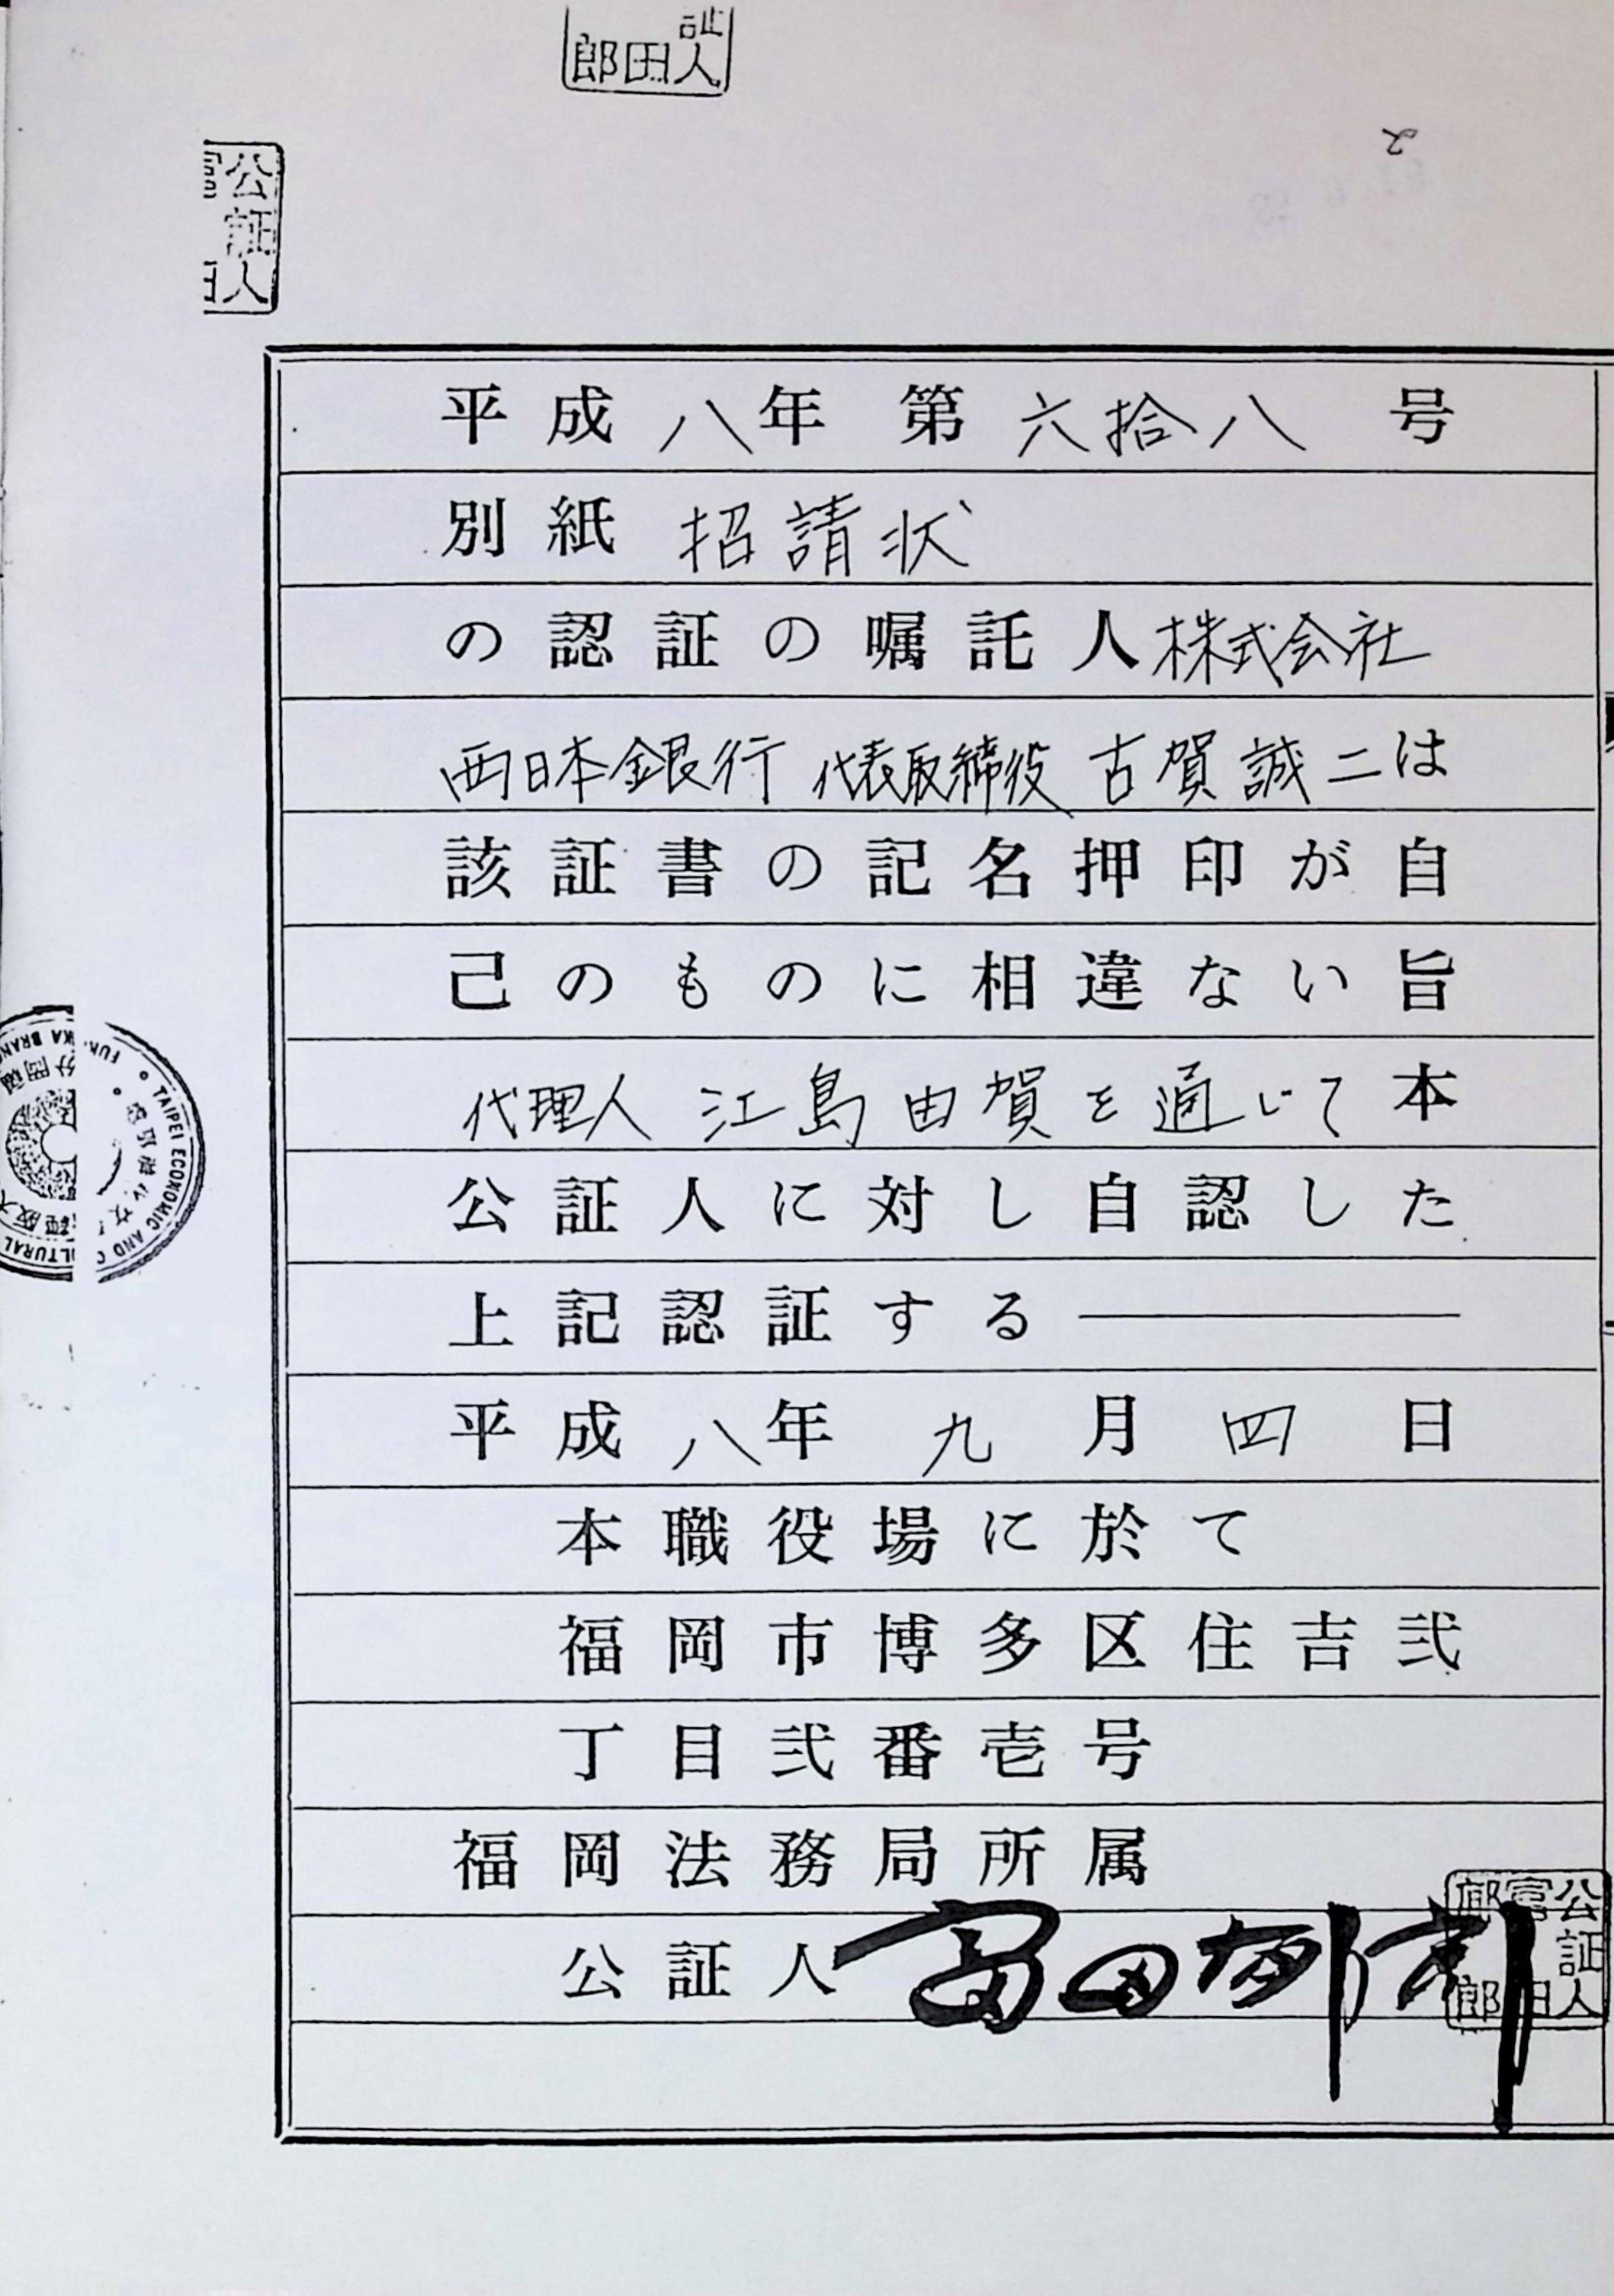 証
郎田人
公
証
人
平成八年第六拾八号
別紙 招請状
の認証の嘱託人株式会社
西日本銀行 代表取締役 古賀誠二は
該証書の記名押印が自
己のものに相違ない旨
代理人 江島由賀を通じて本
公証人に対し自認した
上記認証する
平成八年九月四日
本職役場に於て
福岡市博多区住吉弐
丁目弐番壱号
福岡法務局所属
公証人 富田
公証人富田郎
TAIPEI ECONOMIC AND